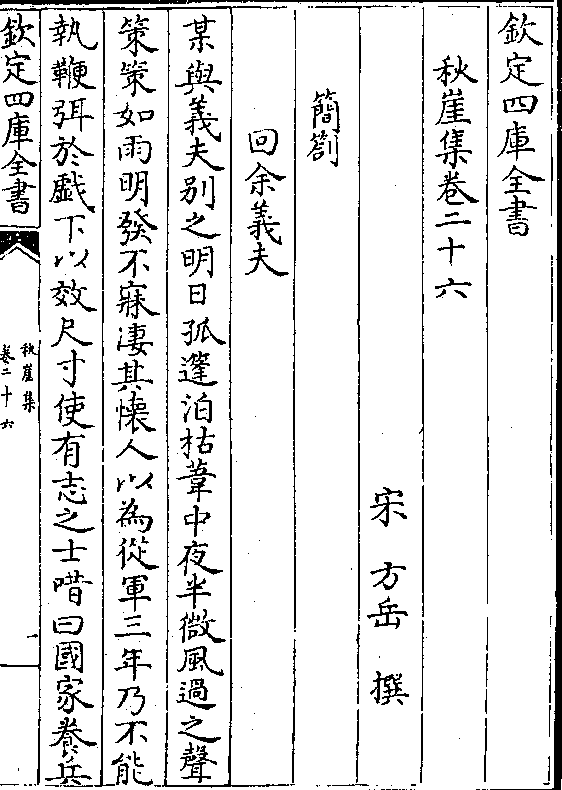 欽定四庫全書
秋崖集卷二十六
宋 方岳 撰
簡劄
回余義夫
某與義夫别之明日孤篷泊枯葦中夜半微風過之聲
策策如雨明發不寐凄其懷人以為從軍三年乃不能
執鞭弭於戯下以效尺寸使有志之士唶曰國家養兵
欽定四庫全書
秋崖集
卷二十六
一